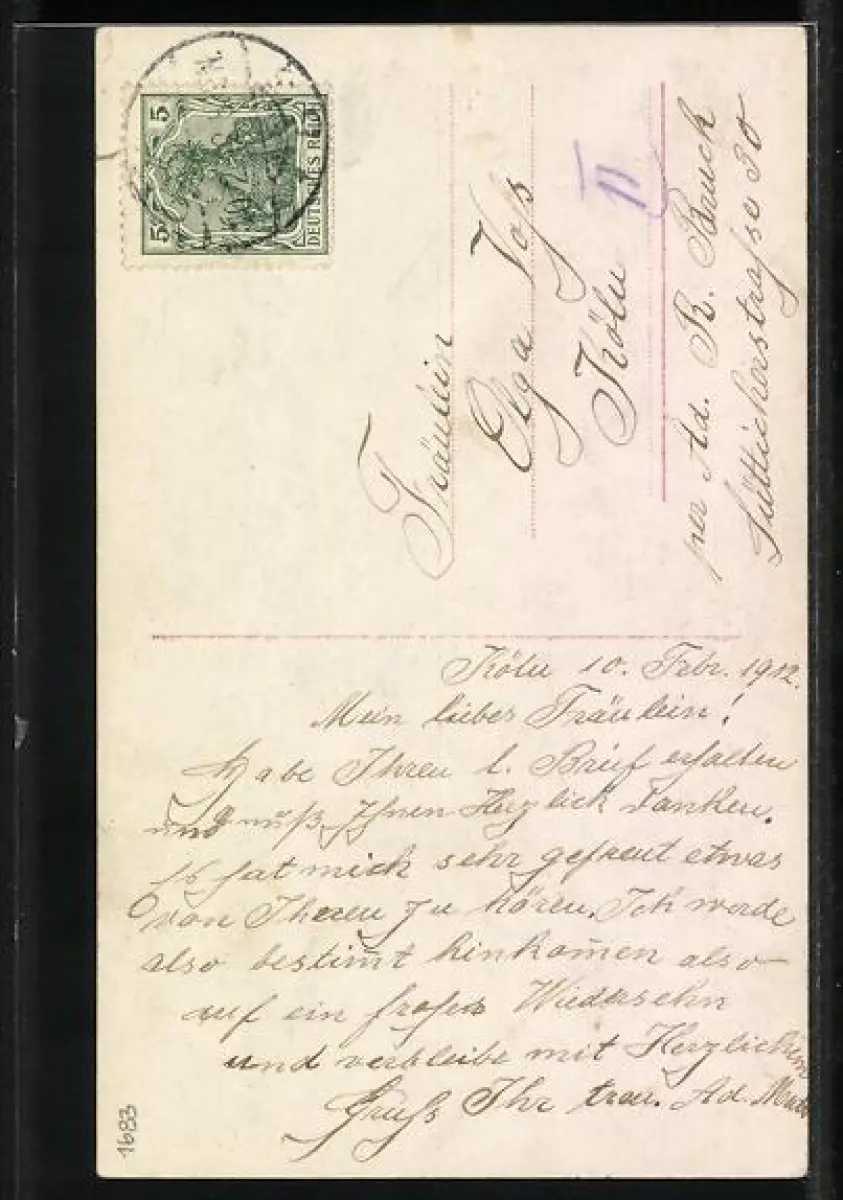 5 5
DEUTSCHES REICH
Fräulein
Olga Voss
Köln
II
per Ad. R. Bruck
Lütticherstrasse 30
Köln 10. Febr. 1912.
Mein liebes Fräulein!
Habe Ihren l. Brief erhalten
und muß Ihnen Herzlich Danken.
Es hat mich sehr gefreut etwas
von Ihnen zu hören. Ich werde
also bestimt hinkom̄en also
auf ein frohes Wiedersehn
und verbleibe mit Herzlichem
Gruß Ihr treu. Ad.
1683